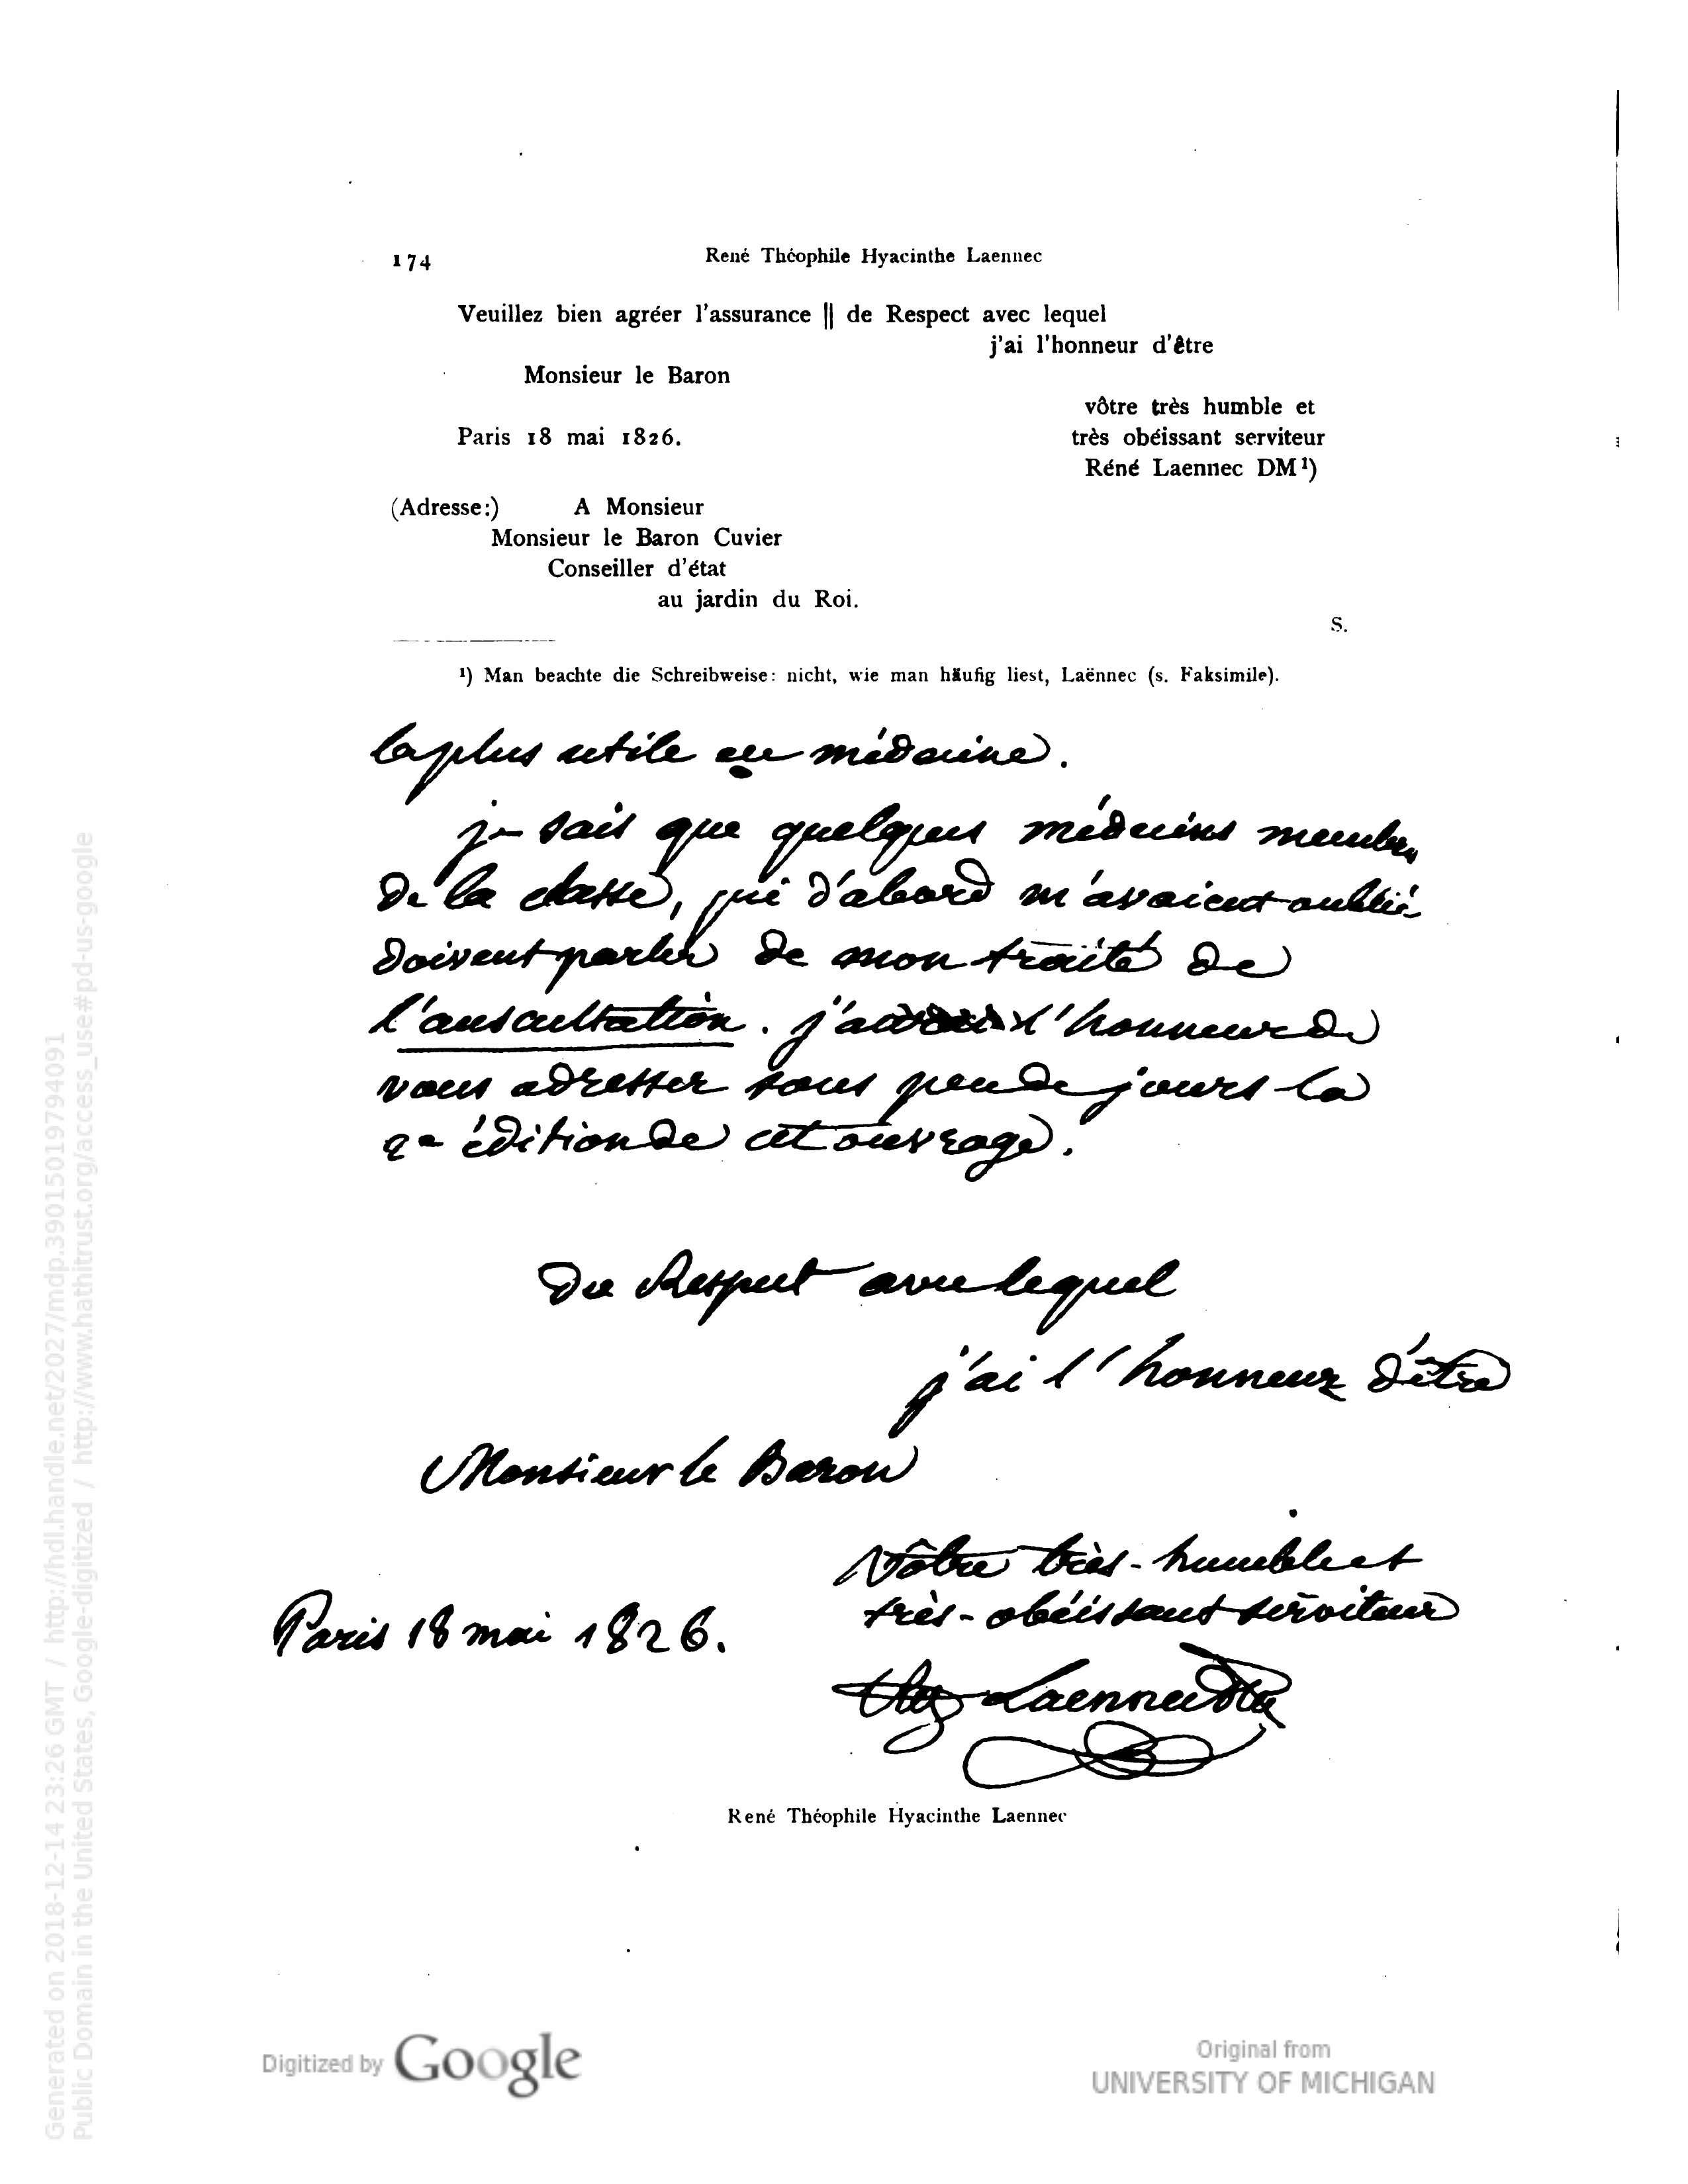 174
René Théophile Hyacinthe Laennec
Veuillez bien agréer l'assurance || de Respect avec lequel
j'ai l'honneur d'être
Monsieur le Baron
vôtre très humble et
Paris 18 mai 1826.
très obéissant serviteur
Réné Laennec DM¹)
(Adresse:) A Monsieur
Monsieur le Baron Cuvier
Conseiller d'état
au jardin du Roi.
S.
¹) Man beachte die Schreibweise: nicht, wie man häufig liest, Laënnec (s. Faksimile).
la plus utile en médecine.
je sais que quelques médecins membres
de la classe, qui d'abord m'avaient oublié,
doivent parler de mon traité de
l'auscultation. j'aurai l'honneur de
vous adresser sous peu de jours la
2e édition de cet ouvrage.
du Respect avec lequel
j'ai l'honneur d'être
Monsieur le Baron
Vôtre très-humble et
très-obéissant serviteur
Paris 18 mai 1826.
Laennec
René Théophile Hyacinthe Laennec
Generated on 2018-12-14 23:26 GMT / http://hdl.handle.net/2027/mdp.39015019794091
Public Domain in the United States, Google-digitized / http://www.hathitrust.org/access_use#pd-us-google
Digitized by Google
Original from
UNIVERSITY OF MICHIGAN